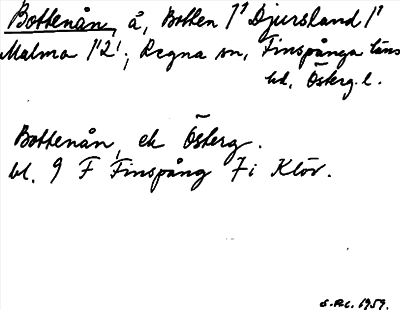 Bottenån, å, Botten 1¹ Djursland 1¹
Malma 1¹2¹; Regna sn, Finspånga läns
hd, Österg. l.
Bottenån, ek Österg.
bl. 9 F Finspång 7i Klöv.
S.RC. 1959.